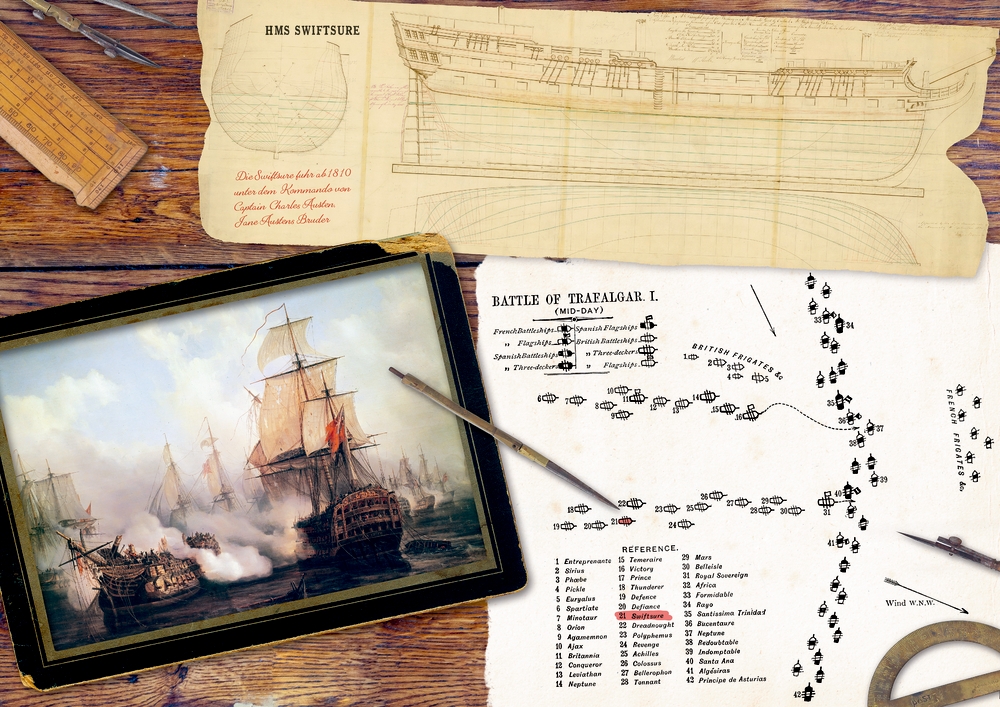 HMS SWIFTSURE
Die Swiftsure fuhr ab 1810
unter dem Kommando von
Captain Charles Austen,
Jane Austens Bruder
BATTLE OF TRAFALGAR. I.
(MID-DAY)
French Battleships Spanish Flagships
„ Flagships British Battleships
Spanish Battleships „ Three-deckers
„ Three-deckers „ Flagships
BRITISH FRIGATES &c
1 2 3 4 5
6 7 8 9 10 11 12 13 14 15 16
33 34
35
36 37
38
39
40
41
42
FRENCH FRIGATES &c.
18 22 23 25 26 27 28 29 30 31
19 20 21 24
Wind W.N.W.
REFERENCE.
1 Entreprenante
2 Sirius
3 Phœbe
4 Pickle
5 Euryalus
6 Spartiate
7 Minotaur
8 Orion
9 Agamemnon
10 Ajax
11 Britannia
12 Conqueror
13 Leviathan
14 Neptune
15 Temeraire
16 Victory
17 Prince
18 Thunderer
19 Defence
20 Defiance
21 Swiftsure
22 Dreadnought
23 Polyphemus
24 Revenge
25 Achilles
26 Colossus
27 Bellerophon
28 Tonnant
29 Mars
30 Belleisle
31 Royal Sovereign
32 Africa
33 Formidable
34 Rayo
35 Santissima Trinidad
36 Bucentaure
37 Neptune
38 Redoubtable
39 Indomptable
40 Santa Ana
41 Algésiras
42 Principe de Asturias